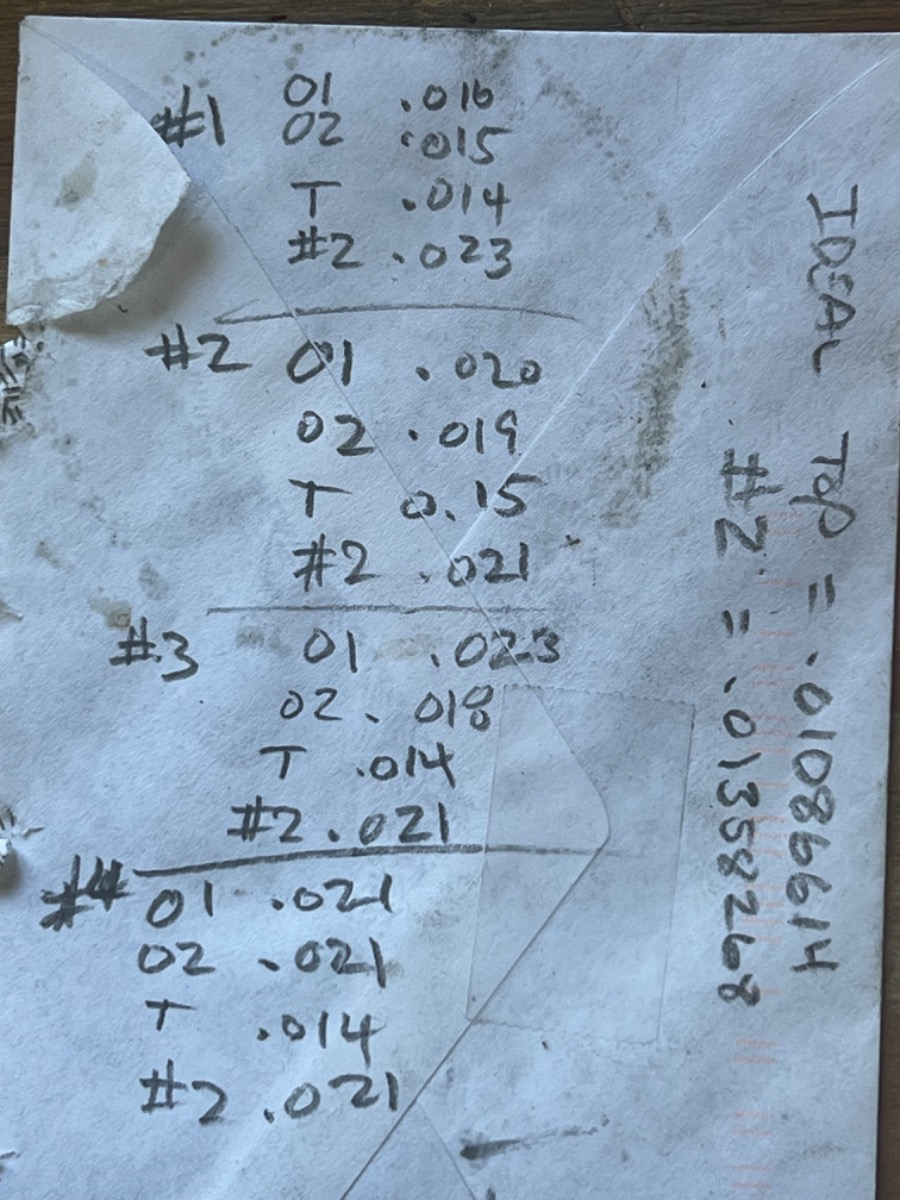 #1 01 .016
02 .015
T .014
#2 .023
#2 01 .020
02 .019
T 0.15
#2 .021
#3 01 .023
02 .018
T .014
#2 .021
#4 01 .021
02 .021
T .014
#2 .021
IDEAL TOP = .010866614
#2 = .013582268